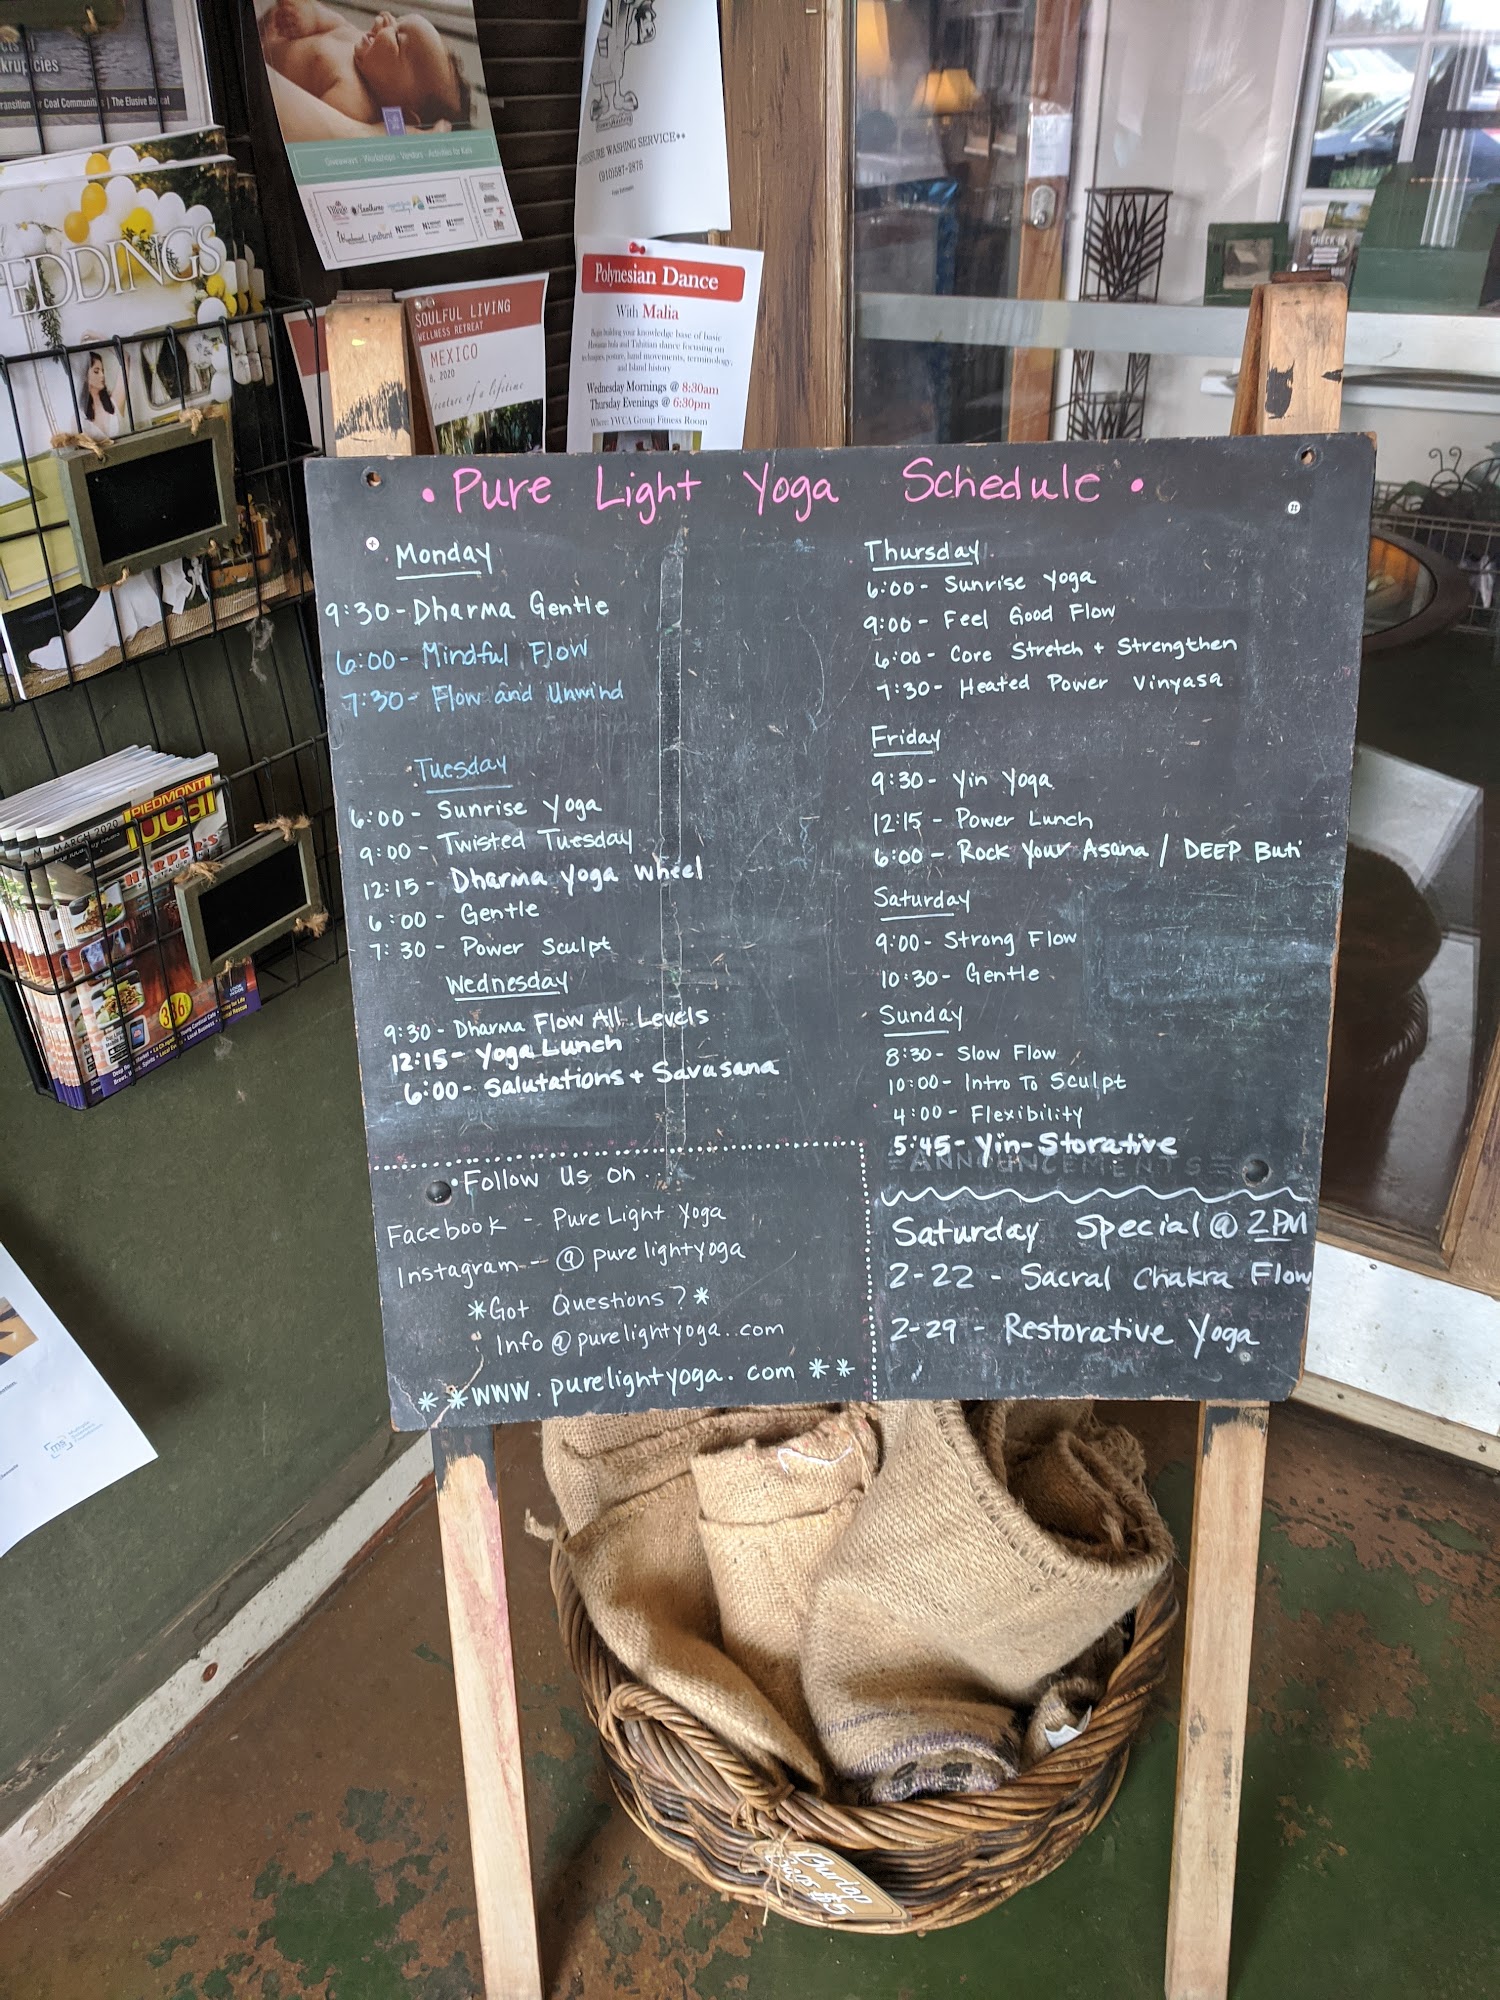 krupcies
Transition for Coal Communities | The Elusive Bobcat
EDDINGS
MARCH 2020
PIEDMONT
local
HARPER'S
336
Giveaways · Workshops · Vendors · Activities for Kids
PRESSURE WASHING SERVICE**
(910)587-2876
SOULFUL LIVING
WELLNESS RETREAT
MEXICO
8, 2020
of a lifetime
Polynesian Dance
With Malia
Begin building your knowledge base of basic
Hawaiian hula and Tahitian dance focusing on
techniques, posture, hand movements, terminology,
and Island history
Wednesday Mornings @ 8:30am
Thursday Evenings @ 6:30pm
Where: YWCA Group Fitness Room
CHECK IN
• Pure Light Yoga Schedule •
Monday
9:30 - Dharma Gentle
6:00 - Mindful Flow
7:30 - Flow and Unwind
Tuesday
6:00 - Sunrise Yoga
9:00 - Twisted Tuesday
12:15 - Dharma Yoga Wheel
6:00 - Gentle
7:30 - Power Sculpt
Wednesday
9:30 - Dharma Flow All Levels
12:15 - Yoga Lunch
6:00 - Salutations + Savasana
Thursday
6:00 - Sunrise Yoga
9:00 - Feel Good Flow
6:00 - Core Stretch + Strengthen
7:30 - Heated Power Vinyasa
Friday
9:30 - Yin Yoga
12:15 - Power Lunch
6:00 - Rock Your Asana / DEEP Buti
Saturday
9:00 - Strong Flow
10:30 - Gentle
Sunday
8:30 - Slow Flow
10:00 - Intro To Sculpt
4:00 - Flexibility
5:45 - Yin-Storative
ANNOUNCEMENTS
• Follow Us on :
Facebook - Pure Light Yoga
Instagram - @purelightyoga
*Got Questions?*
Info@purelightyoga.com
**www.purelightyoga.com**
Saturday Special @ 2PM
2-22 - Sacral Chakra Flow
2-29 - Restorative Yoga
Burlap
Bags $5